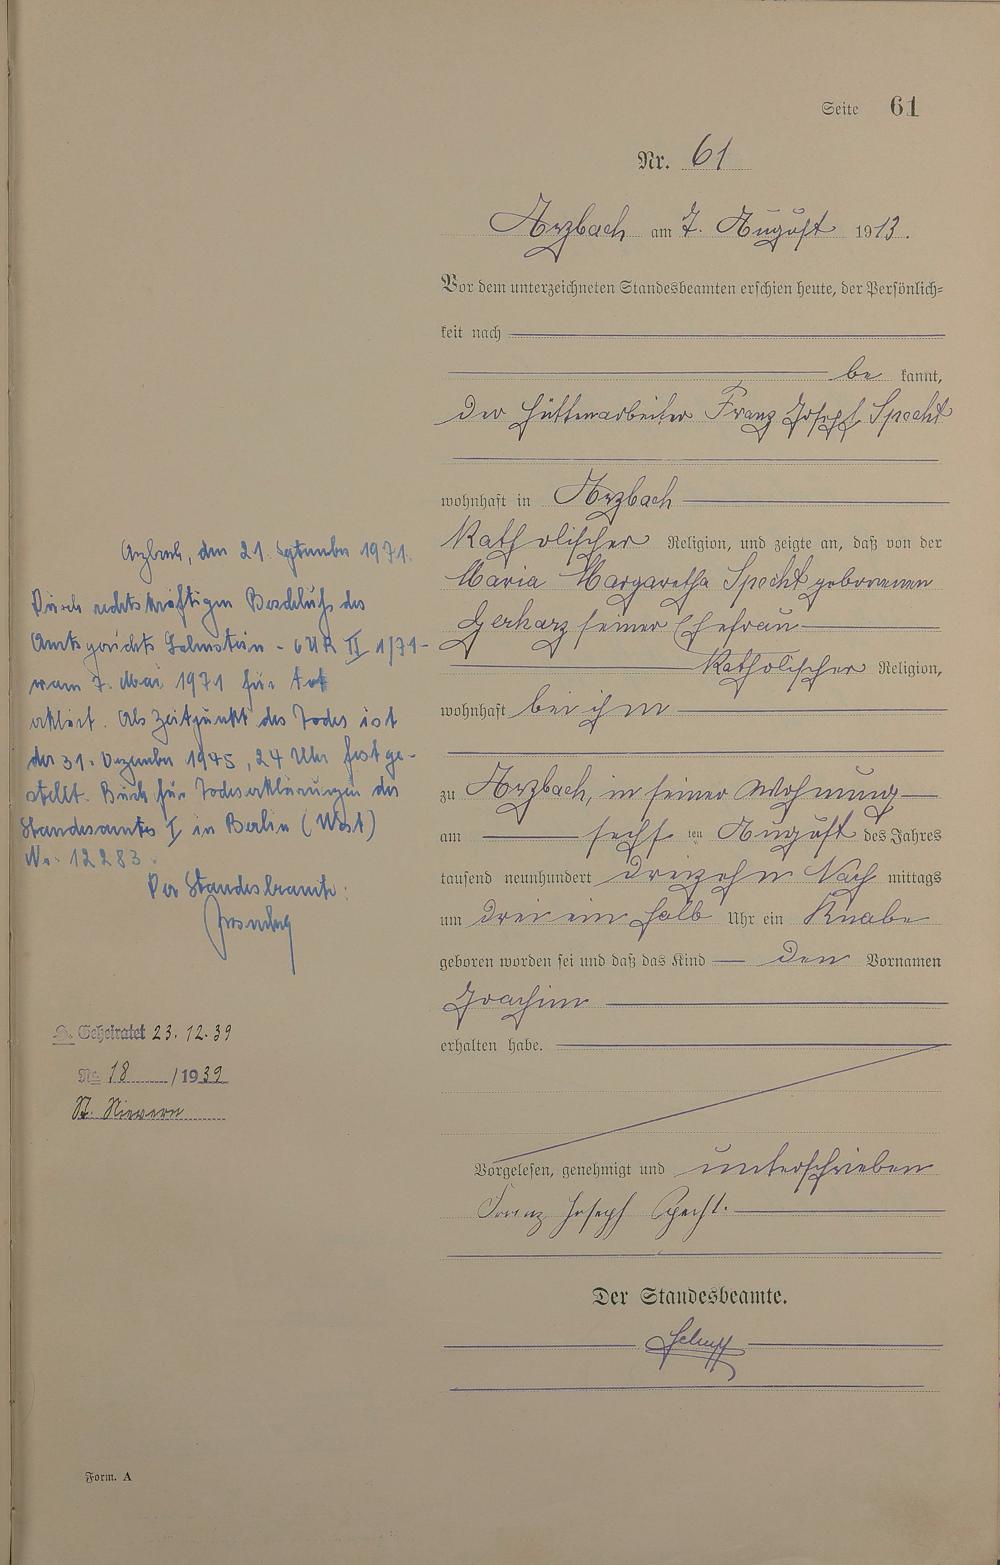 Seite 61
Nr. 61
Arzbach am 7. August 1913.
Vor dem unterzeichneten Standesbeamten erschien heute, der Persönlich-
keit nach
be kannt,
der Hüttenarbeiter Franz Joseph Specht
wohnhaft in Arzbach
Katholischer Religion, und zeigte an, daß von der
Maria Margaretha Specht geborenen
Gerharz seiner Ehefrau
Katholischer Religion,
wohnhaft bei ihm
zu Arzbach, in seiner Wohnung
am sechsten August des Jahres
tausend neunhundert dreizehn Nach mittags
um drei ein halb Uhr ein Knabe
geboren worden sei und daß das Kind den Vornamen
Joachim
erhalten habe.
Vorgelesen, genehmigt und unterschrieben
Franz Joseph Specht.
Der Standesbeamte.
Arzbach, den 21. September 1971.
Durch rechtskräftigen Beschluß des
Amtsgerichts Lahnstein - 6 UR II 1/71 -
vom 7. Mai 1971 für tot
erklärt. Als Zeitpunkt des Todes ist
der 31. Dezember 1945, 24 Uhr festge-
stellt. Buch für Todeserklärungen des
Standesamts I in Berlin (West)
Nr. 12283.
Der Standesbeamte:
Geheiratet 23.12.39
Nr. 18 /1939
St. Nievern
Form. A